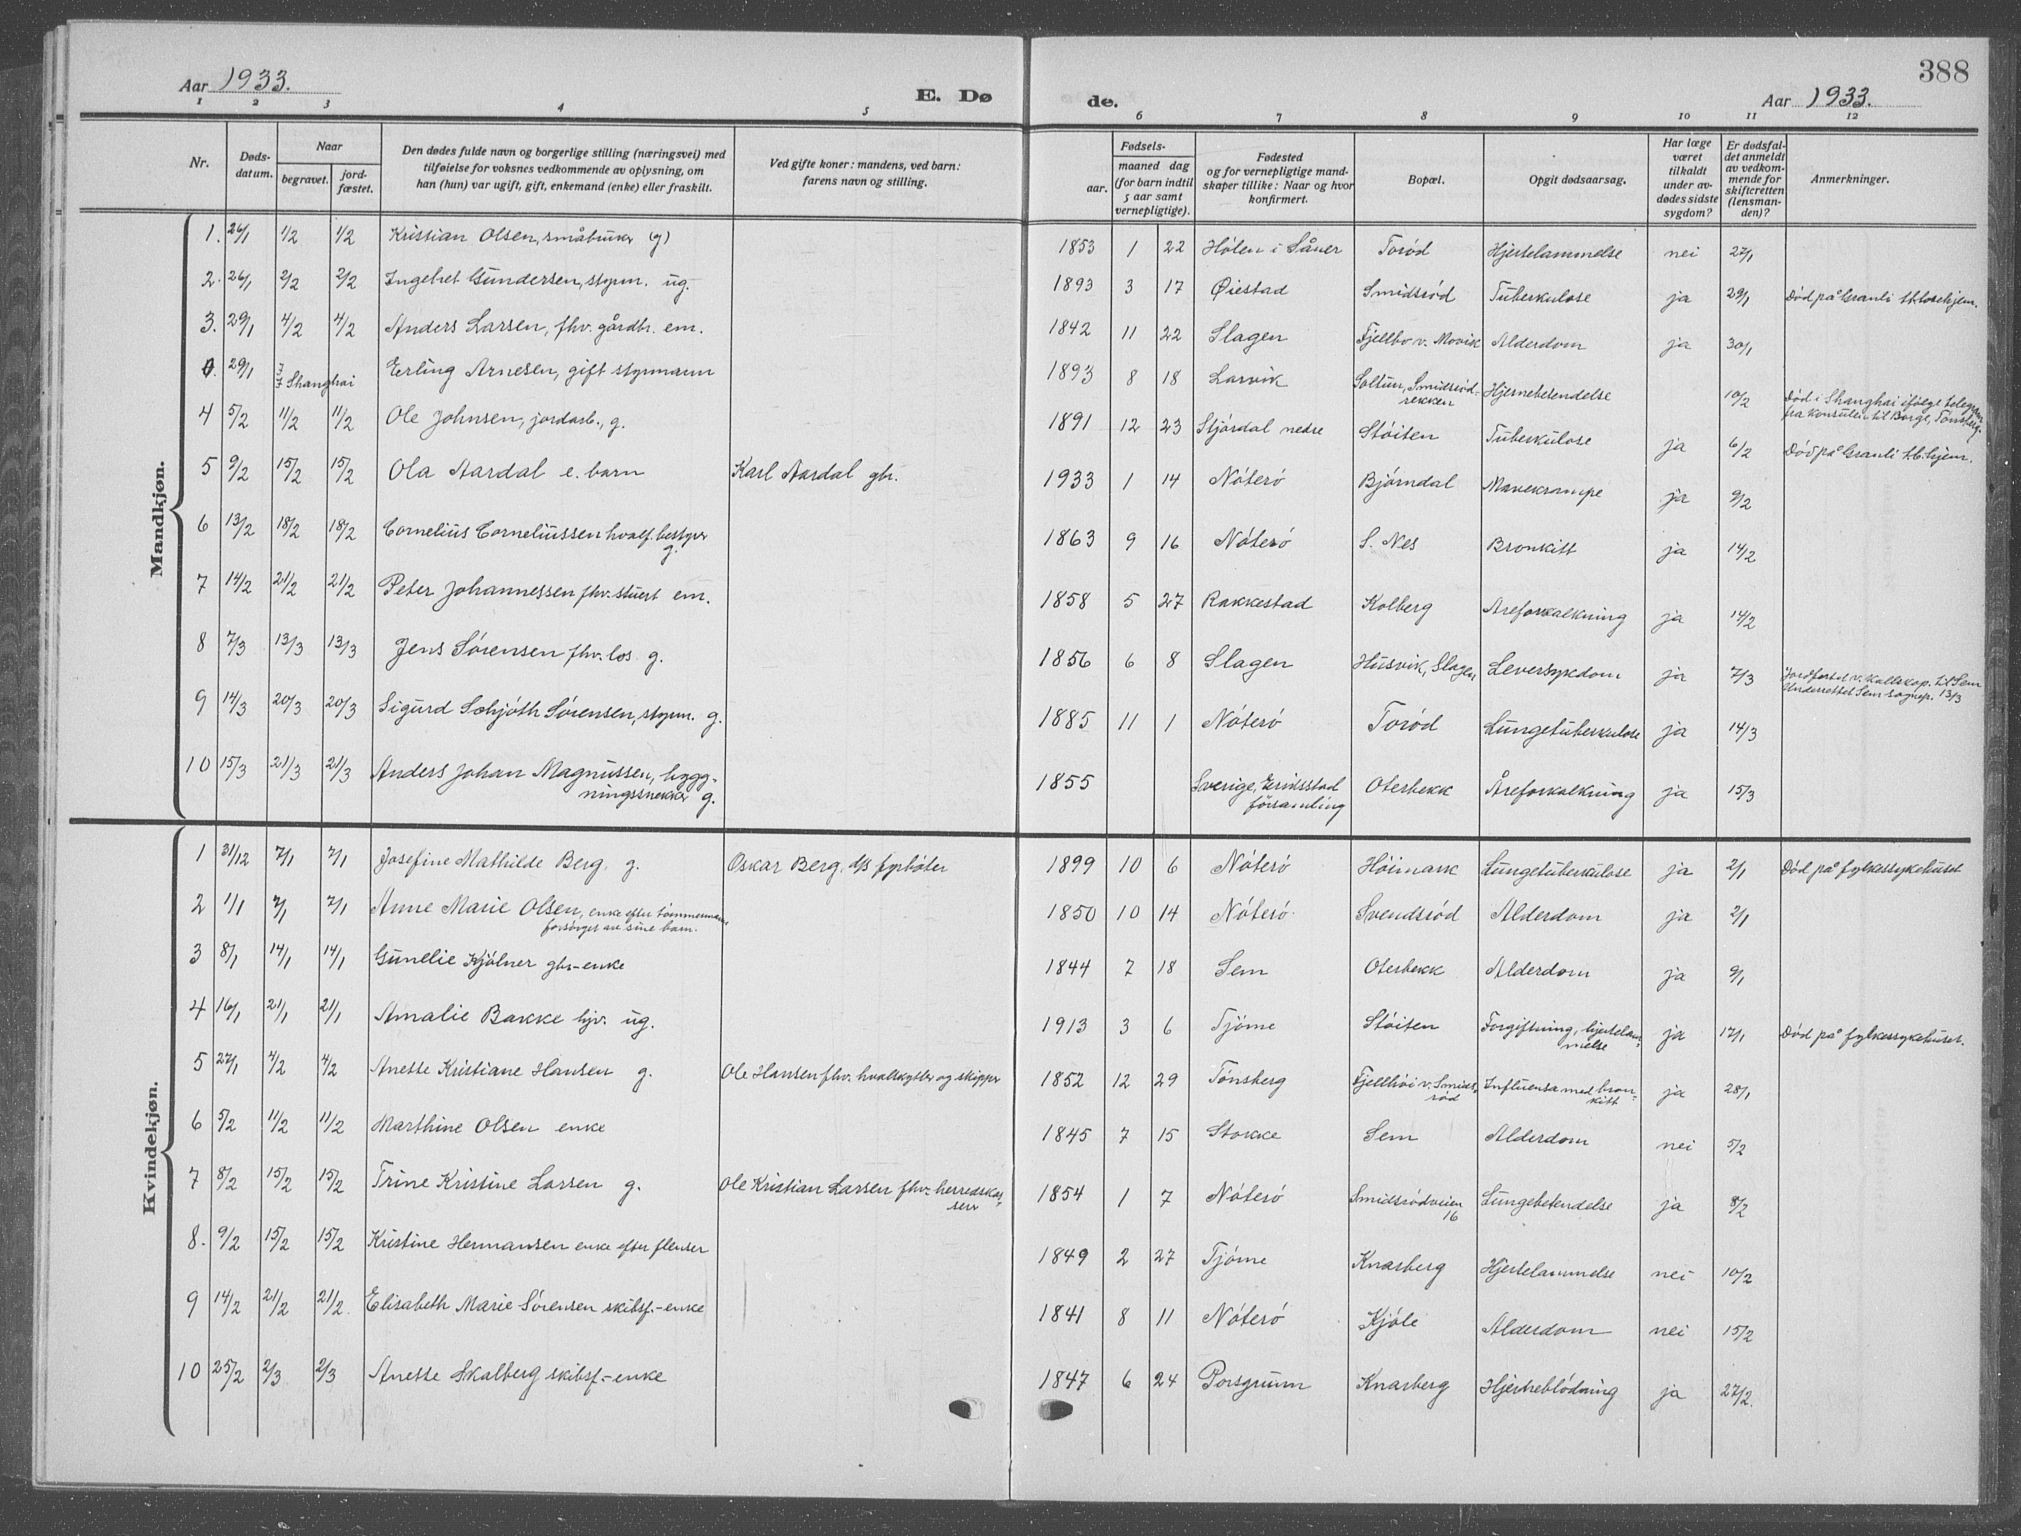 388
Aar 1933.
E. Dø
de.
Aar 1933.
1 2 3 4 5 6 7 8 9 10 11 12
Nr.
Døds-
datum.
Naar
begravet.
jord-
fæstet.
Den dødes fulde navn og borgerlige stilling (næringsvei) med
tilføielse for voksnes vedkommende av oplysning, om
han (hun) var ugift, gift, enkemand (enke) eller fraskilt.
Ved gifte koner: mandens, ved barn:
farens navn og stilling.
Fødsels-
aar.
maaned dag
(for barn indtil
5 aar samt
vernepligtige).
Fødested
og for vernepligtige mand-
skaper tillike: Naar og hvor
konfirmert.
Bopæl.
Opgit dødsaarsag.
Har læge
været
tilkaldt
under av-
dødes sidste
sygdom?
Er dødsfal-
det anmeldt
av vedkom-
mende for
skifteretten
(lensman-
den)?
Anmerkninger.
Mandkjøn.
1. 26/1 1/2 1/2 Kristian Olsen, småbruker (g) 1853 1 22 Hølen i Såner Torød Hjertelammelse nei 27/1
2. 26/1 2/2 2/2 Ingebret Gundersen, styrm. ug. 1893 3 17 Øiestad Smidsrød Tuberkulose ja 29/1 Død på Granli tb.losehjem.
3. 29/1 4/2 4/2 Anders Larsen, fhv. gårdbr. em. 1842 11 22 Slagen Fjellbo v. Movik Alderdom ja 30/1
0. 29/1 Shanghai Erling Arnesen, gift styrmann 1893 8 18 Larvik Soltun, Smidsrød-
rekken Hjernebetendelse 10/2 Død i Shanghai ifølge telegram
fra konsulen til Borge, Tønsberg.
4 5/2 11/2 11/2 Ole Johnsen, jordarb., g. 1891 12 23 Stjørdal nedre Støiten Tuberkulose ja 6/2 Død på Granli tb.hjem.
5 9/2 15/2 15/2 Ola Aardal e. barn Karl Aardal gbr. 1933 1 14 Nøterø Bjørndal Mavekrampe ja 9/2
6 13/2 18/2 18/2 Cornelius Corneliussen hvalf.bestyrer
g. 1863 9 16 Nøterø S. Nes Bronkitt ja 14/2
7 14/2 21/2 21/2 Peter Johannessen fhv. stuert em. 1858 5 27 Rakkestad Kolberg Åreforkalkning ja 14/2
8 7/3 13/3 13/3 Jens Sørensen fhv. los g. 1856 6 8 Slagen Husvik, Slagen Leversykdom ja 7/3 Jordfestet v. kallskap. til Sem
Underrettet Sem sognep. 13/3
9 14/3 20/3 20/3 Sigurd Schjøth Sørensen, styrm. g. 1885 11 1 Nøterø Torød Lungetuberkulose ja 14/3
10 15/3 21/3 21/3 Anders Johan Magnussen, bygg-
ningssnekker g. 1855 Sverige, Eriksstad
församling Oterbekk Åreforkalkning ja 15/3
Kvindekjøn.
1 31/12 7/1 7/1 Josefine Mathilde Berg g. Oskar Berg, d/s fyrbøter 1899 10 6 Nøterø Høimark Lungetuberkulose ja 2/1 Død på fylkessykehuset
2 1/1 7/1 7/1 Anne Marie Olsen, enke efter tømmermann
forsørget av sine barn. 1850 10 14 Nøterø Svendsrød Alderdom ja 2/1
3 8/1 14/1 14/1 Gunelie Kjølner gbr-enke 1844 7 18 Sem Oterbekk Alderdom ja 9/1
4 16/1 21/1 21/1 Amalie Bakke hjv. ug. 1913 3 6 Tjøme Støiten Forgiftning, hjertelam-
melse ja 17/1 Død på fylkessykehuset.
5 27/1 4/2 4/2 Anette Kristiane Hansen g. Ole Hansen fhv. hvalskytter og skipper 1852 12 29 Tønsberg Fjellhøi v. Smids-
rød Influensa med bron-
kitt ja 28/1
6 5/2 11/2 11/2 Marthine Olsen enke 1845 7 15 Stokke Sem Alderdom nei 5/2
7 8/2 15/2 15/2 Trine Kristine Larsen g. Ole Kristian Larsen fhv. herredskas-
serer 1854 1 7 Nøterø Smidsrødveien
16 Lungebetendelse ja 8/2
8. 9/2 15/2 15/2 Kristine Hermansen enke efter flenser 1849 2 27 Tjøme Knarberg Hjertelammelse nei 10/2
9 14/2 21/2 21/2 Elisabeth Marie Sørensen skibsf.-enke 1841 8 11 Nøterø Kjøle Alderdom nei 15/2
10 25/2 2/3 2/3 Anette Skalberg skibsf.-enke 1847 6 24 Porsgrunn Knarberg Hjerneblødning ja 27/2.